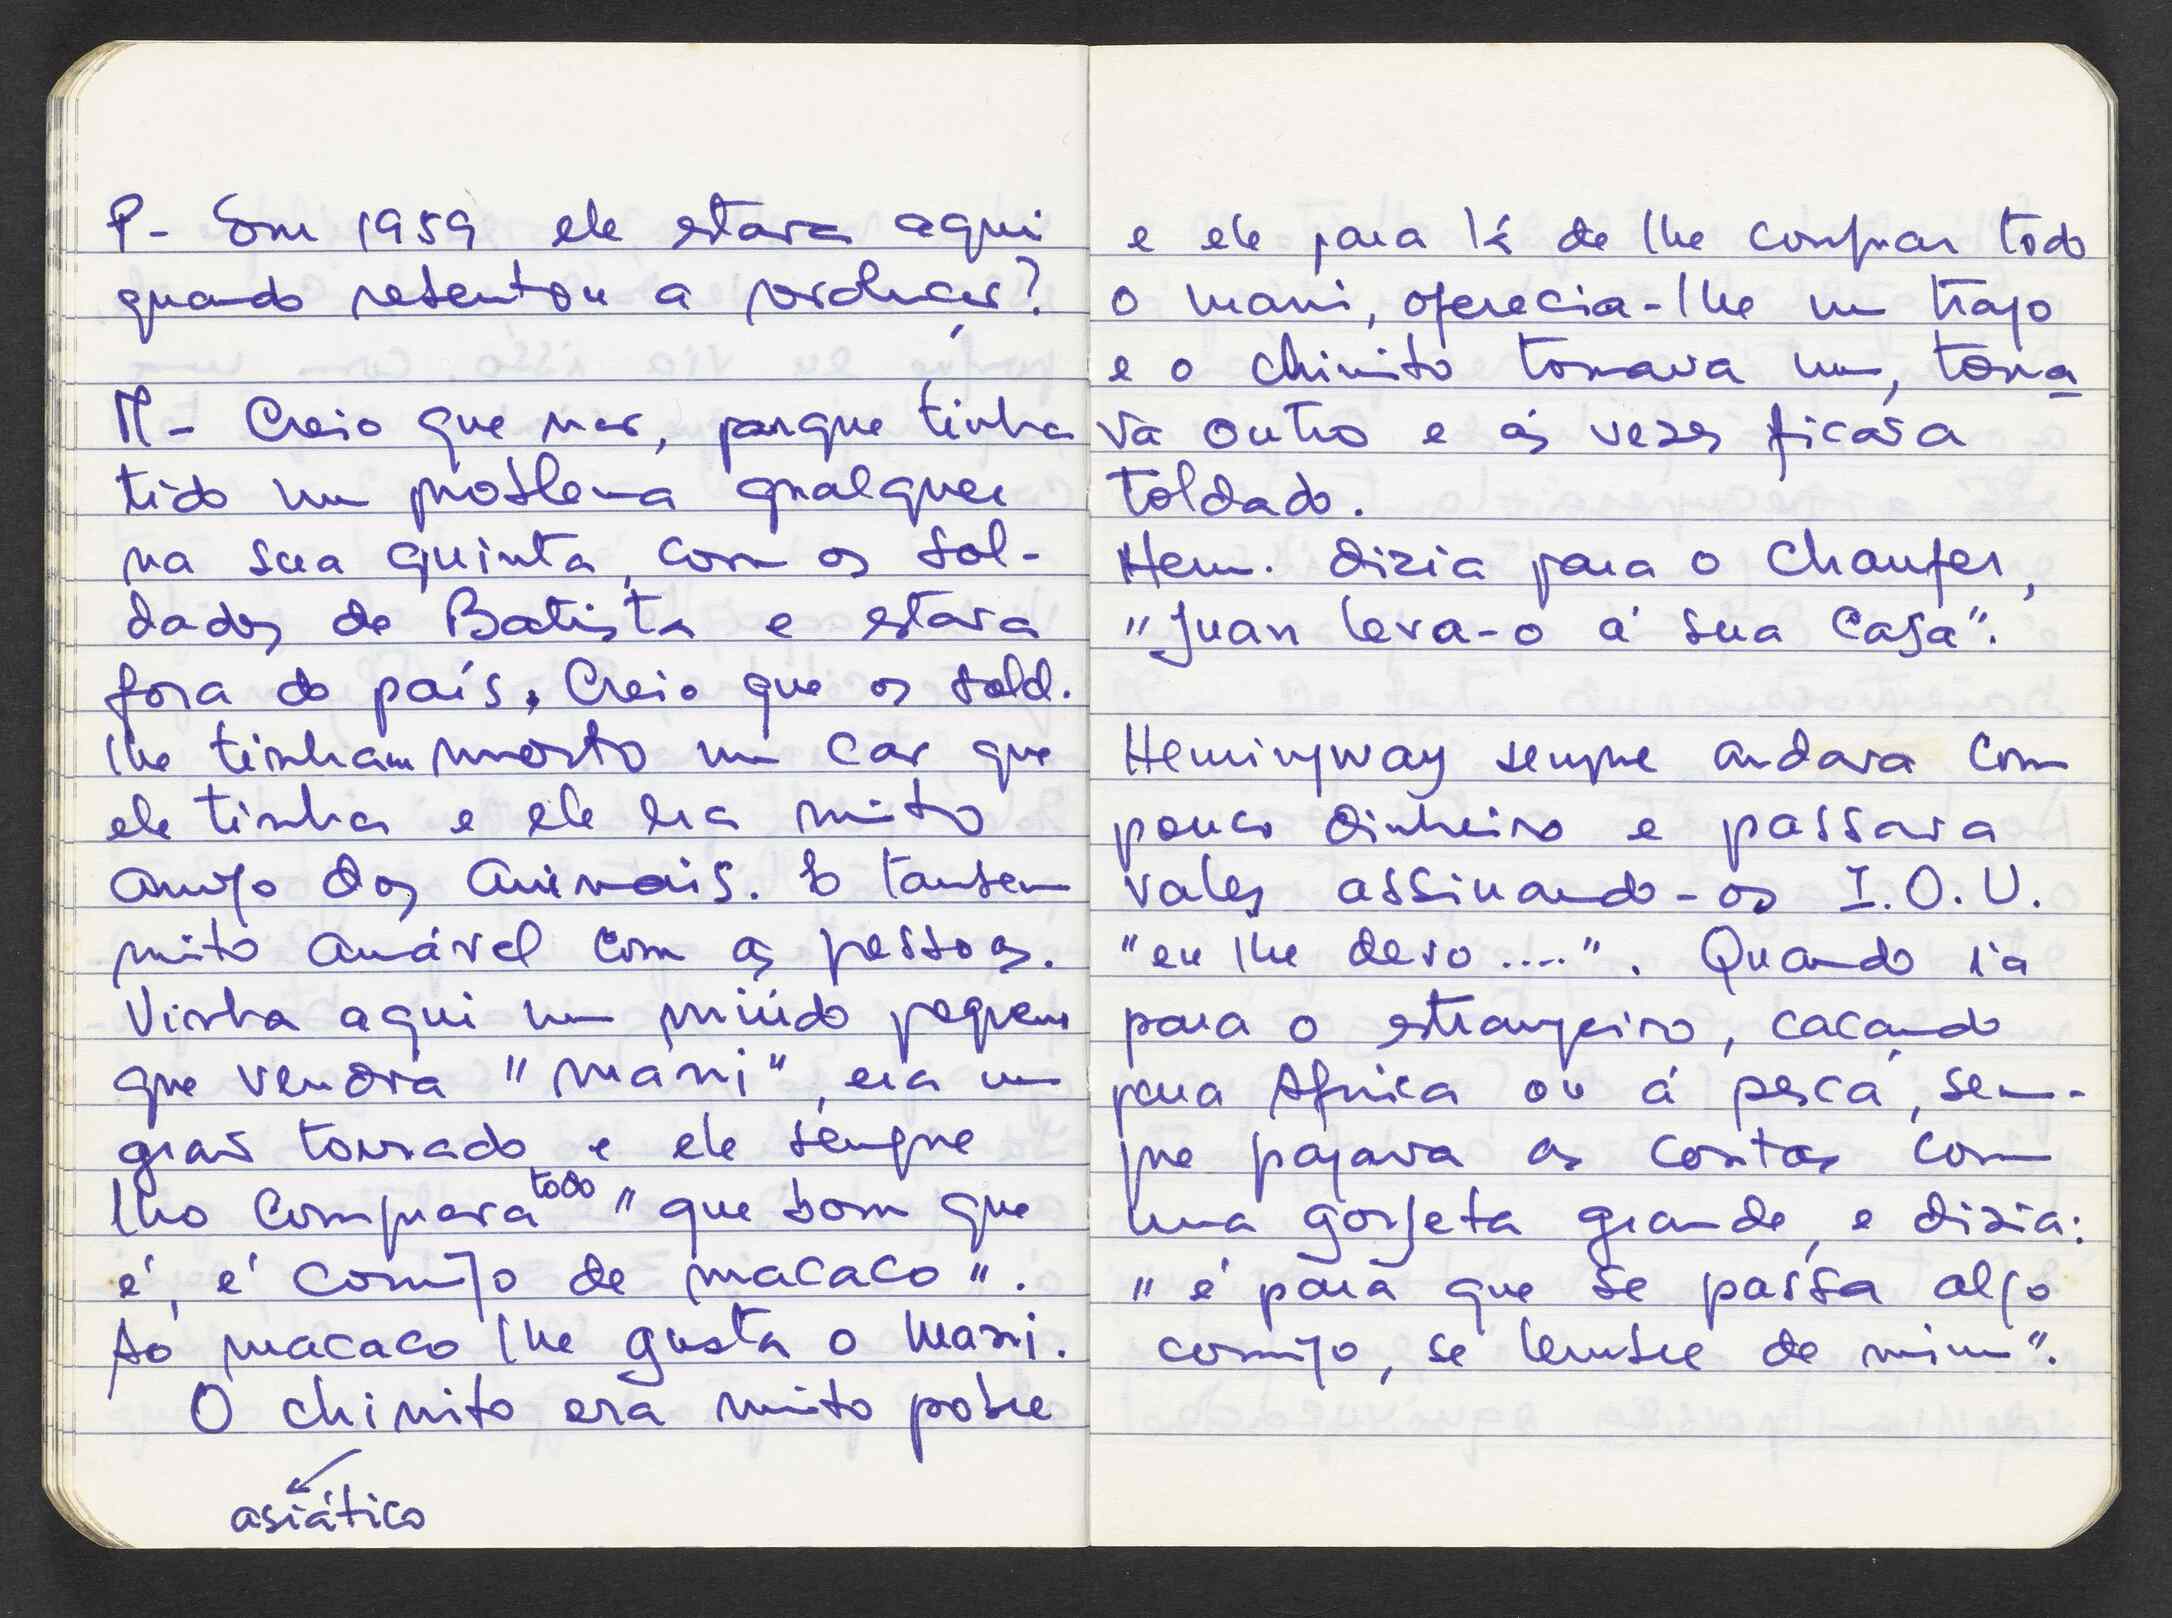 P- Em 1959 ele estava aqui
quando rebentou a revolução?
M- Creio que não, porque tinha
tido um problema qualquer
na sua quinta, com os sol-
dados de Batista e estava
fora do país. Creio que os sold.
lhe tinham morto um cão que
ele tinha e ele era muito
amigo dos animais. E também
muito amável com as pessoas.
Vinha aqui um miúdo pequeno
que vendia "mani", era um
grão torrado e ele sempre
lho comprava todo "que bom que
é, é comigo de macaco".
Ao macaco lhe gusta o mani.
O chinito era muito pobre
asiático
e ele para lá de lhe comprar todo
o mani, oferecia-lhe um trago
e o chinito tomava um, toma
va outro e ás vezes ficava
toldado.
Hem. dizia para o chaufer,
"Juan leva-o á sua casa".
Hemingway sempre andava com
pouco dinheiro e passava
vales assinando-os I.O.U.
"eu lhe devo....". Quando ia
para o estrangeiro, caçando
para Africa ou á pesca, sem-
pre pagava as contas com
uma gorjeta grande, e dizia:
"é para que se passa algo
comigo, se lembre de mim".